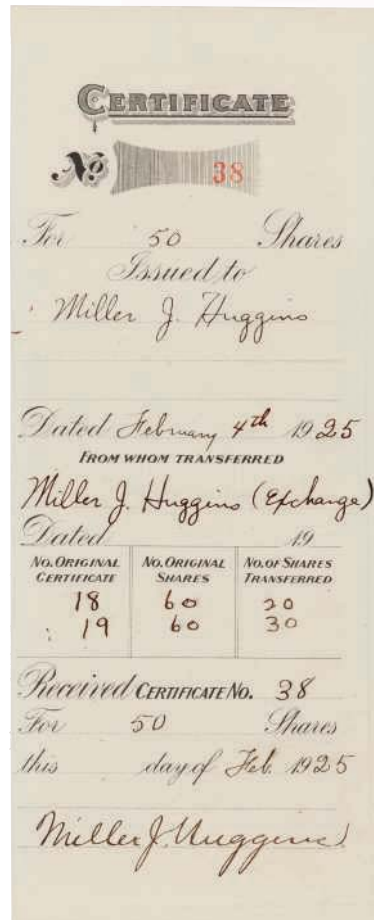 CERTIFICATE
No. 38
For 50 Shares
Issued to
Miller J. Huggins
Dated February 4th 1925
FROM WHOM TRANSFERRED
Miller J. Huggins (Exchange)
Dated 19
NO. ORIGINAL CERTIFICATE NO. ORIGINAL SHARES NO. OF SHARES TRANSFERRED
18 60 20
19 60 30
Received CERTIFICATE No. 38
For 50 Shares
this day of Feb. 1925
Miller J. Huggins